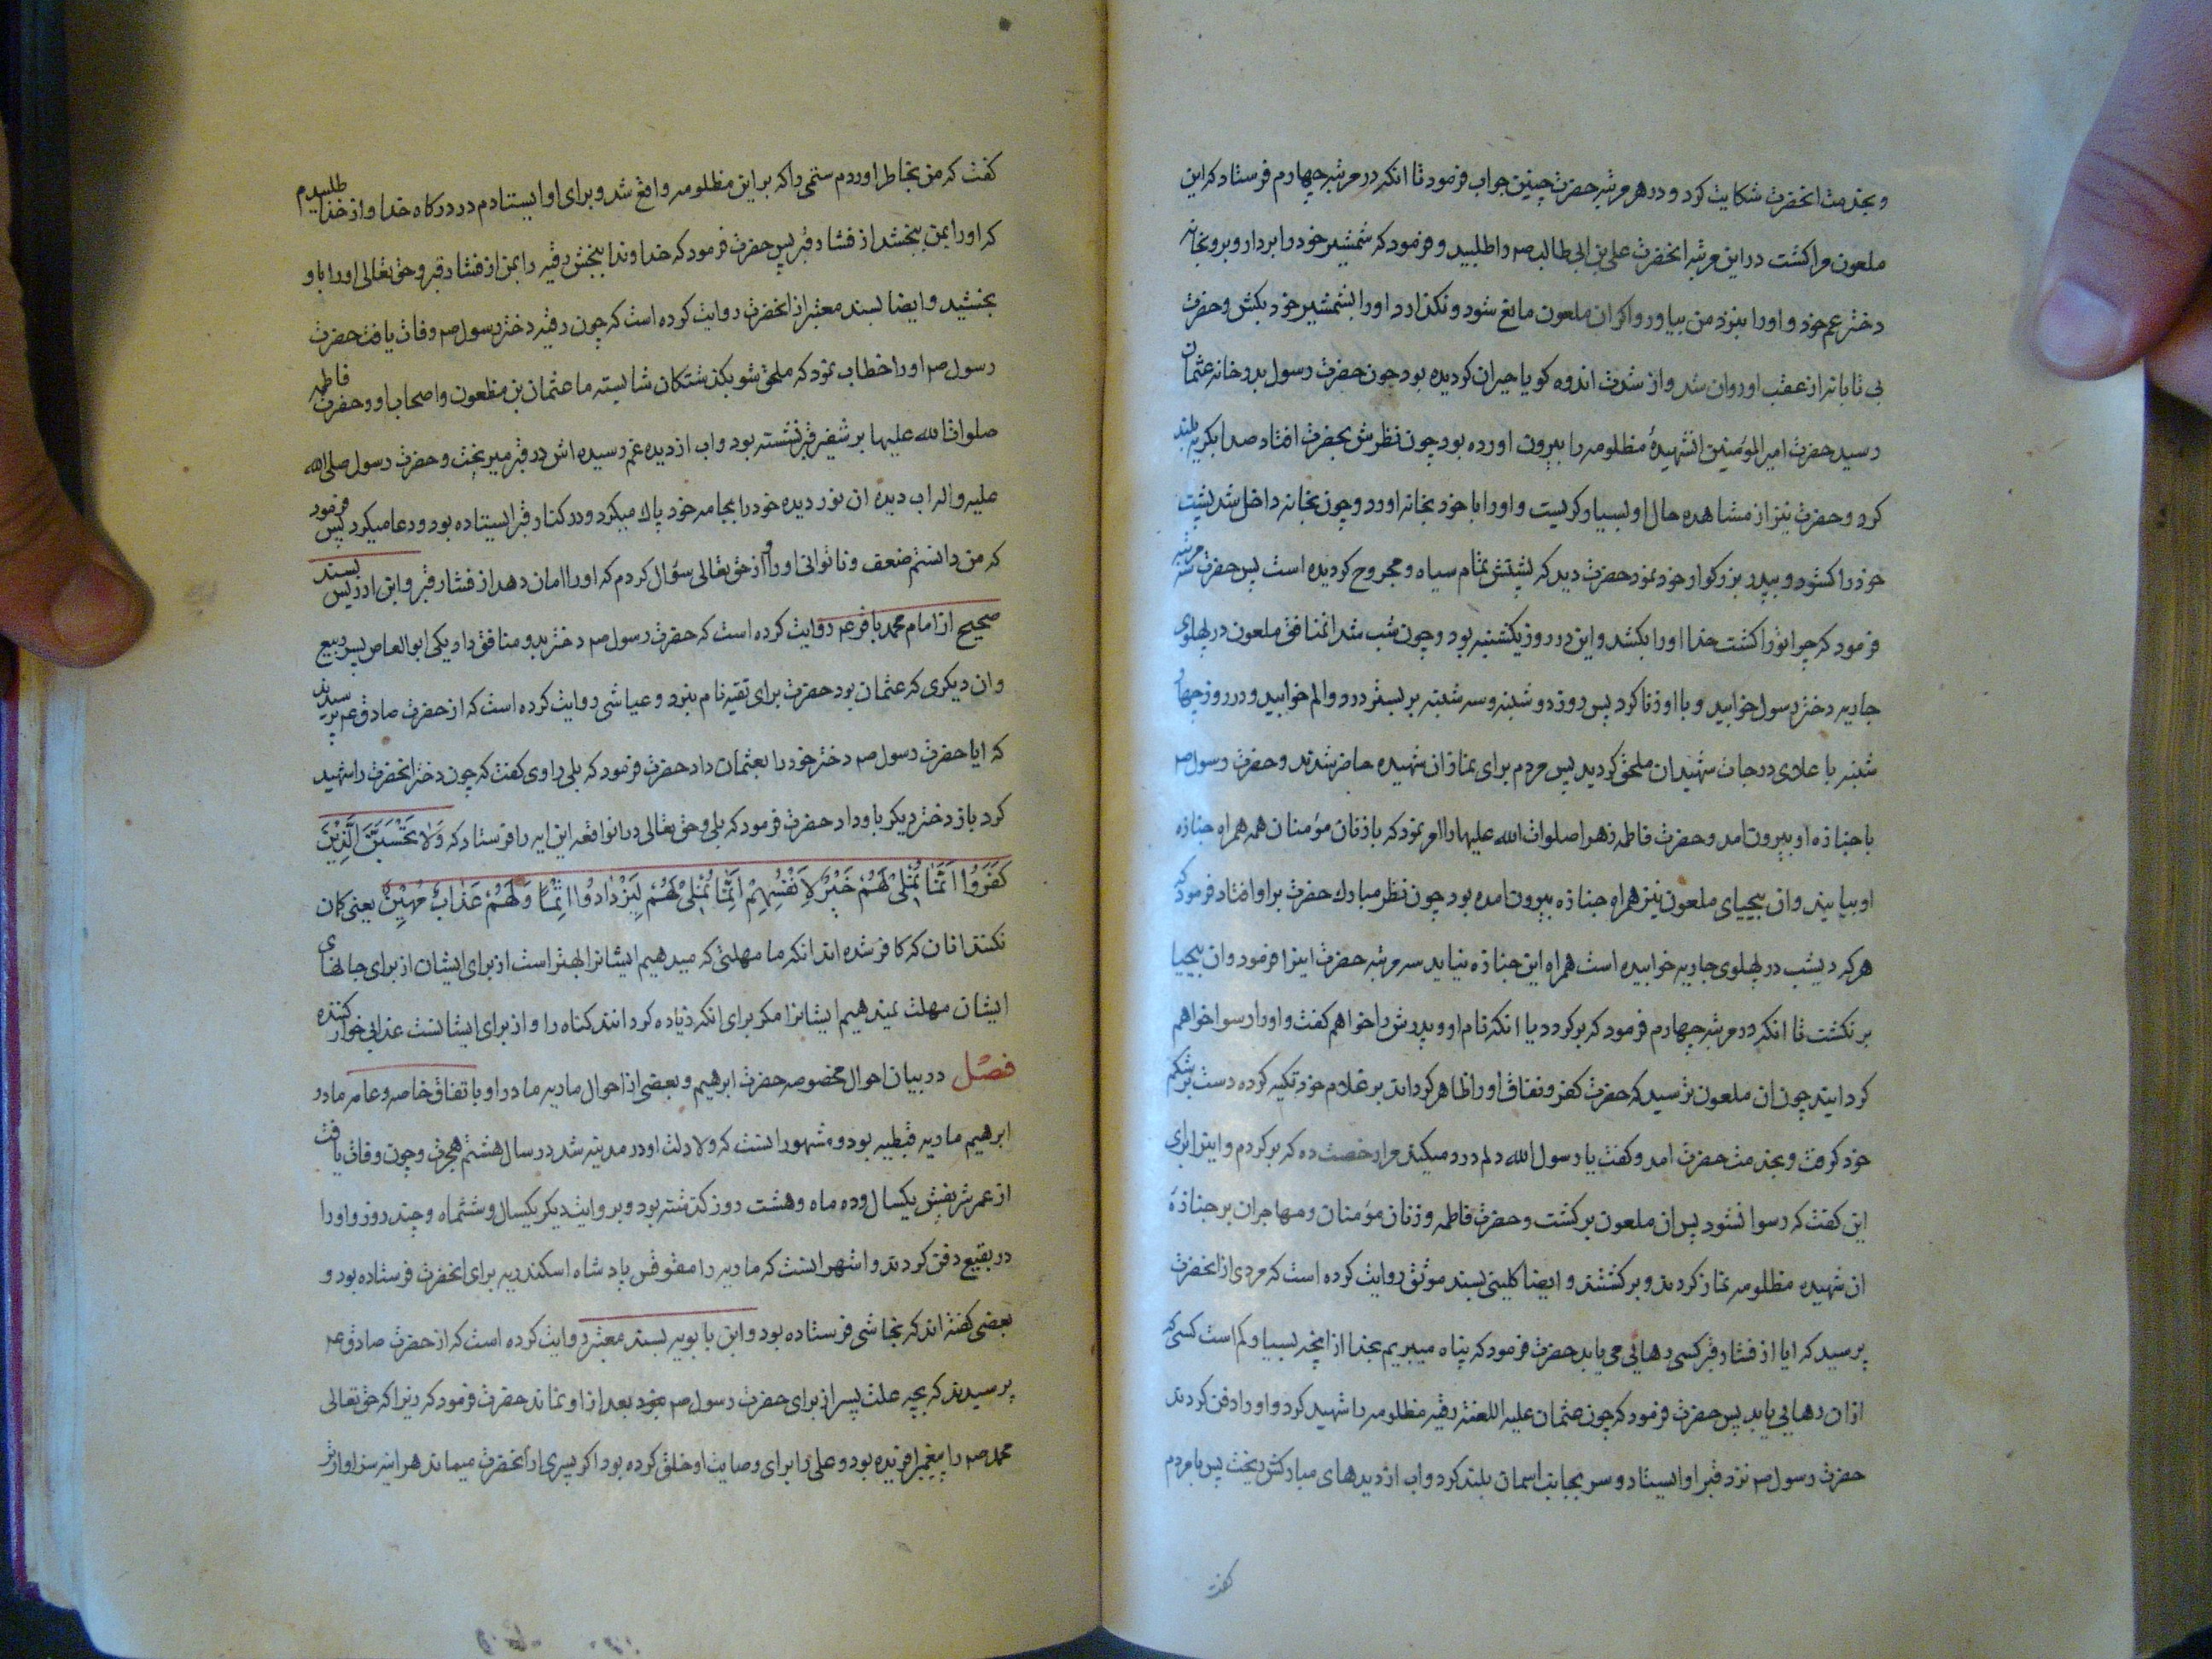 و بخدمت انحضرت شکایت کرد و در هر مرتبه حضرت چنین جواب فرمود تا انکه در مرتبه چهارم فرستاد که این
ملعون مرا کشت در این مرتبه انحضرت علی بن ابی طالب صم را طلبید و فرمود که شمشیر خود را بردار و برو بخانه
دختر عم خود و اورا بنزد من بیاور و اکر ان ملعون مانع شود و نکذارد اورا بشمشیر خود بکش و حضرت
بی تابانه از عقب او روان شد و از شدت اندوه کویا حیران کردیده بود چون حضرت رسول بدر خانه عثمان
رسید حضرت امیرالمؤمنین انشهیدهٔ مظلومه را بیرون اورده بود چون نظرش بحضرت افتاد صدا بکریه بلند
کرد و حضرت نیز از مشاهده حال او بسیار کریست و اورا با خود بخانه اورد و چون بخانه داخل شد پشت
خود را کشود و بپدر بزرکوار خود نمود حضرت دید که پشتش تمام سیاه و مجروح کردیده است پس حضرت سه مرتبه
فرمود که چرا تورا کشت خدا اورا بکشد و این در روز یکشنبه بود و چون شب شد انمنافق ملعون در پهلوی
جاریه دختر رسول خوابید و با او زنا کرد پس روز دوشنبه و سه شنبه بر بستر درد و الم خوابید و در روز چهار
شنبه با علای درجات شهیدان ملحق کردید پس مردم برای نماز ان شهیده حاضر شدند و حضرت رسول صم
با جنازه او بیرون امد و حضرت فاطمه زهرا صلوات الله علیها را امر نمود که با زنان مؤمنان همه همراه جنازه
او بیایند و ان بیحیای ملعون نیز همراه جنازه بیرون امده بود چون نظر مبارک حضرت بر او افتاد فرمود که
هر که دیشب در پهلوی جاریه خوابیده است همراه این جنازه نیاید سه مرتبه حضرت اینرا فرمود و ان بیحیا
بر نکشت تا انکه در مرتبه چهارم فرمود که بر کردد یا انکه نام او و پدرش را خواهم کفت و اورا رسوا خواهم
کردانید چون ان ملعون ترسید که حضرت کفر و نفاق اورا ظاهر کرداند بر غلام خود تکیه کرده دست بر شکم
خود کرفت و بخدمت حضرت امد و کفت یا رسول الله دلم درد میکند مرا رخصت ده که بر کردم و اینرا برای
این کفت که رسوا نشود پس ان ملعون بر کشت و حضرت فاطمه و زنان مؤمنان و مهاجران بر جنازهٔ
ان شهیده مظلومه نماز کردند و بر کشتند و ایضا کلینی بسند موثق روایت کرده است که مردی از انحضرت
پرسید که ایا از فشار قبر کسی رهایی می یابد حضرت فرمود که پناه میبریم بخدا از انچه بسیار کم است کسی که
ازان رهایی یابد پس حضرت فرمود که چون عثمان علیه اللعنة رقیه مظلومه را شهید کرد و اورا دفن کردند
حضرت رسول صم نزد قبر او ایستاد و سر بجانب اسمان بلند کرد و اب از دیدهای مبارکش ریخت پس با مردم
کفت
کفت که من بخاطر اوردم ستمی را که بر این مظلومه واقع شد و برای او ایستادم در درکاه خدا و از خدا طلبیدم
که اورا بمن ببخشد از فشار قبر پس حضرت فرمود که خداوندا ببخش رقیه را بمن از فشار قبر و حق تعالی اورا باو
بخشید و ایضا بسند معتبر از انحضرت روایت کرده است که چون رقیه دختر رسول صم وفات یافت حضرت
رسول صم اورا خطاب نمود که ملحق شو بکذشتکان شایسته ما عثمان بن مظعون و اصحاب او و حضرت فاطمه
صلوات الله علیها بر شفیر قبر نشسته بود و اب از دیده غم رسیده اش در قبر میریخت و حضرت رسول صلی الله
علیه واله اب دیده ان نور دیده خود را بجامه خود پاک میکرد و در کنار قبر ایستاده بود و دعا میکرد پس فرمود
که من دانستم ضعف و ناتوانی اورا و از حق تعالی سؤال کردم که اورا امان دهد از فشار قبر و ابن ادریس بسند
صحیح از امام محمد باقر عم روایت کرده است که حضرت رسول صم دختر بدو منافق داد یکی ابوالعاص پسر ربیع
و ان دیکری که عثمان بود حضرت برای تقیه نام نبرد و عیاشی روایت کرده است که از حضرت صادق عم پرسیدند
که ایا حضرت رسول صم دختر خود را بعثمان داد حضرت فرمود که بلی راوی کفت که چون دختر انحضرت را شهید
کرد باز دختر دیکر باو داد حضرت فرمود که بلی و حق تعالی در انواقعه این ایه را فرستاد که وَلٰا تَحْسَبَنَّ الَّذِیْنَ
کَفَرُوا اَنَّمٰا نُمْلِیْ لَهُمْ خَیْرٌ لِاَنْفُسِهِمْ اِنَّمٰا نُمْلِیْ لَهُمْ لِیَزْدٰادُوا اِثْمًا وَلَهُمْ عَذٰابٌ مُهِیْنٌ یعنی کمان
نکنند انان که کافر شده اند انکه ما مهلتی که میدهیم ایشانرا بهتر است از برای ایشان از برای جانهای
ایشان مهلت نمیدهیم ایشانرا مکر برای انکه زیاده کردانند کناه را و از برای ایشانست عذابی خوار کننده
فصل در بیان احوال مخصوصه حضرت ابرهیم و بعضی از احوال ماریه مادر او باتفاق خاصه و عامه مادر
ابرهیم ماریه قبطیه بود و مشهور انست که ولادت او در مدینه شد در سال هشتم هجرت و چون وفات یافت
از عمر شریفش یکسال و ده ماه و هشت روز کذشته بود و بروایت دیکر یکسال و ششماه و چند روز و اورا
در بقیع دفن کردند و اشهر انست که ماریه را مقوقس پادشاه اسکندریه برای انحضرت فرستاده بود و
بعضی کفته اند که نجاشی فرستاده بود و ابن بابویه بسند معتبر روایت کرده است که از حضرت صادق عم
پرسیدند که بچه علت پسر از برای حضرت رسول صم بعد از او نماند حضرت فرمود که زیرا که حق تعالی
محمد صم را پیغمبر افریده بود و علی را برای وصایت او خلق کرده بود اکر پسری از انحضرت میماند هر اینه سزاوارتر